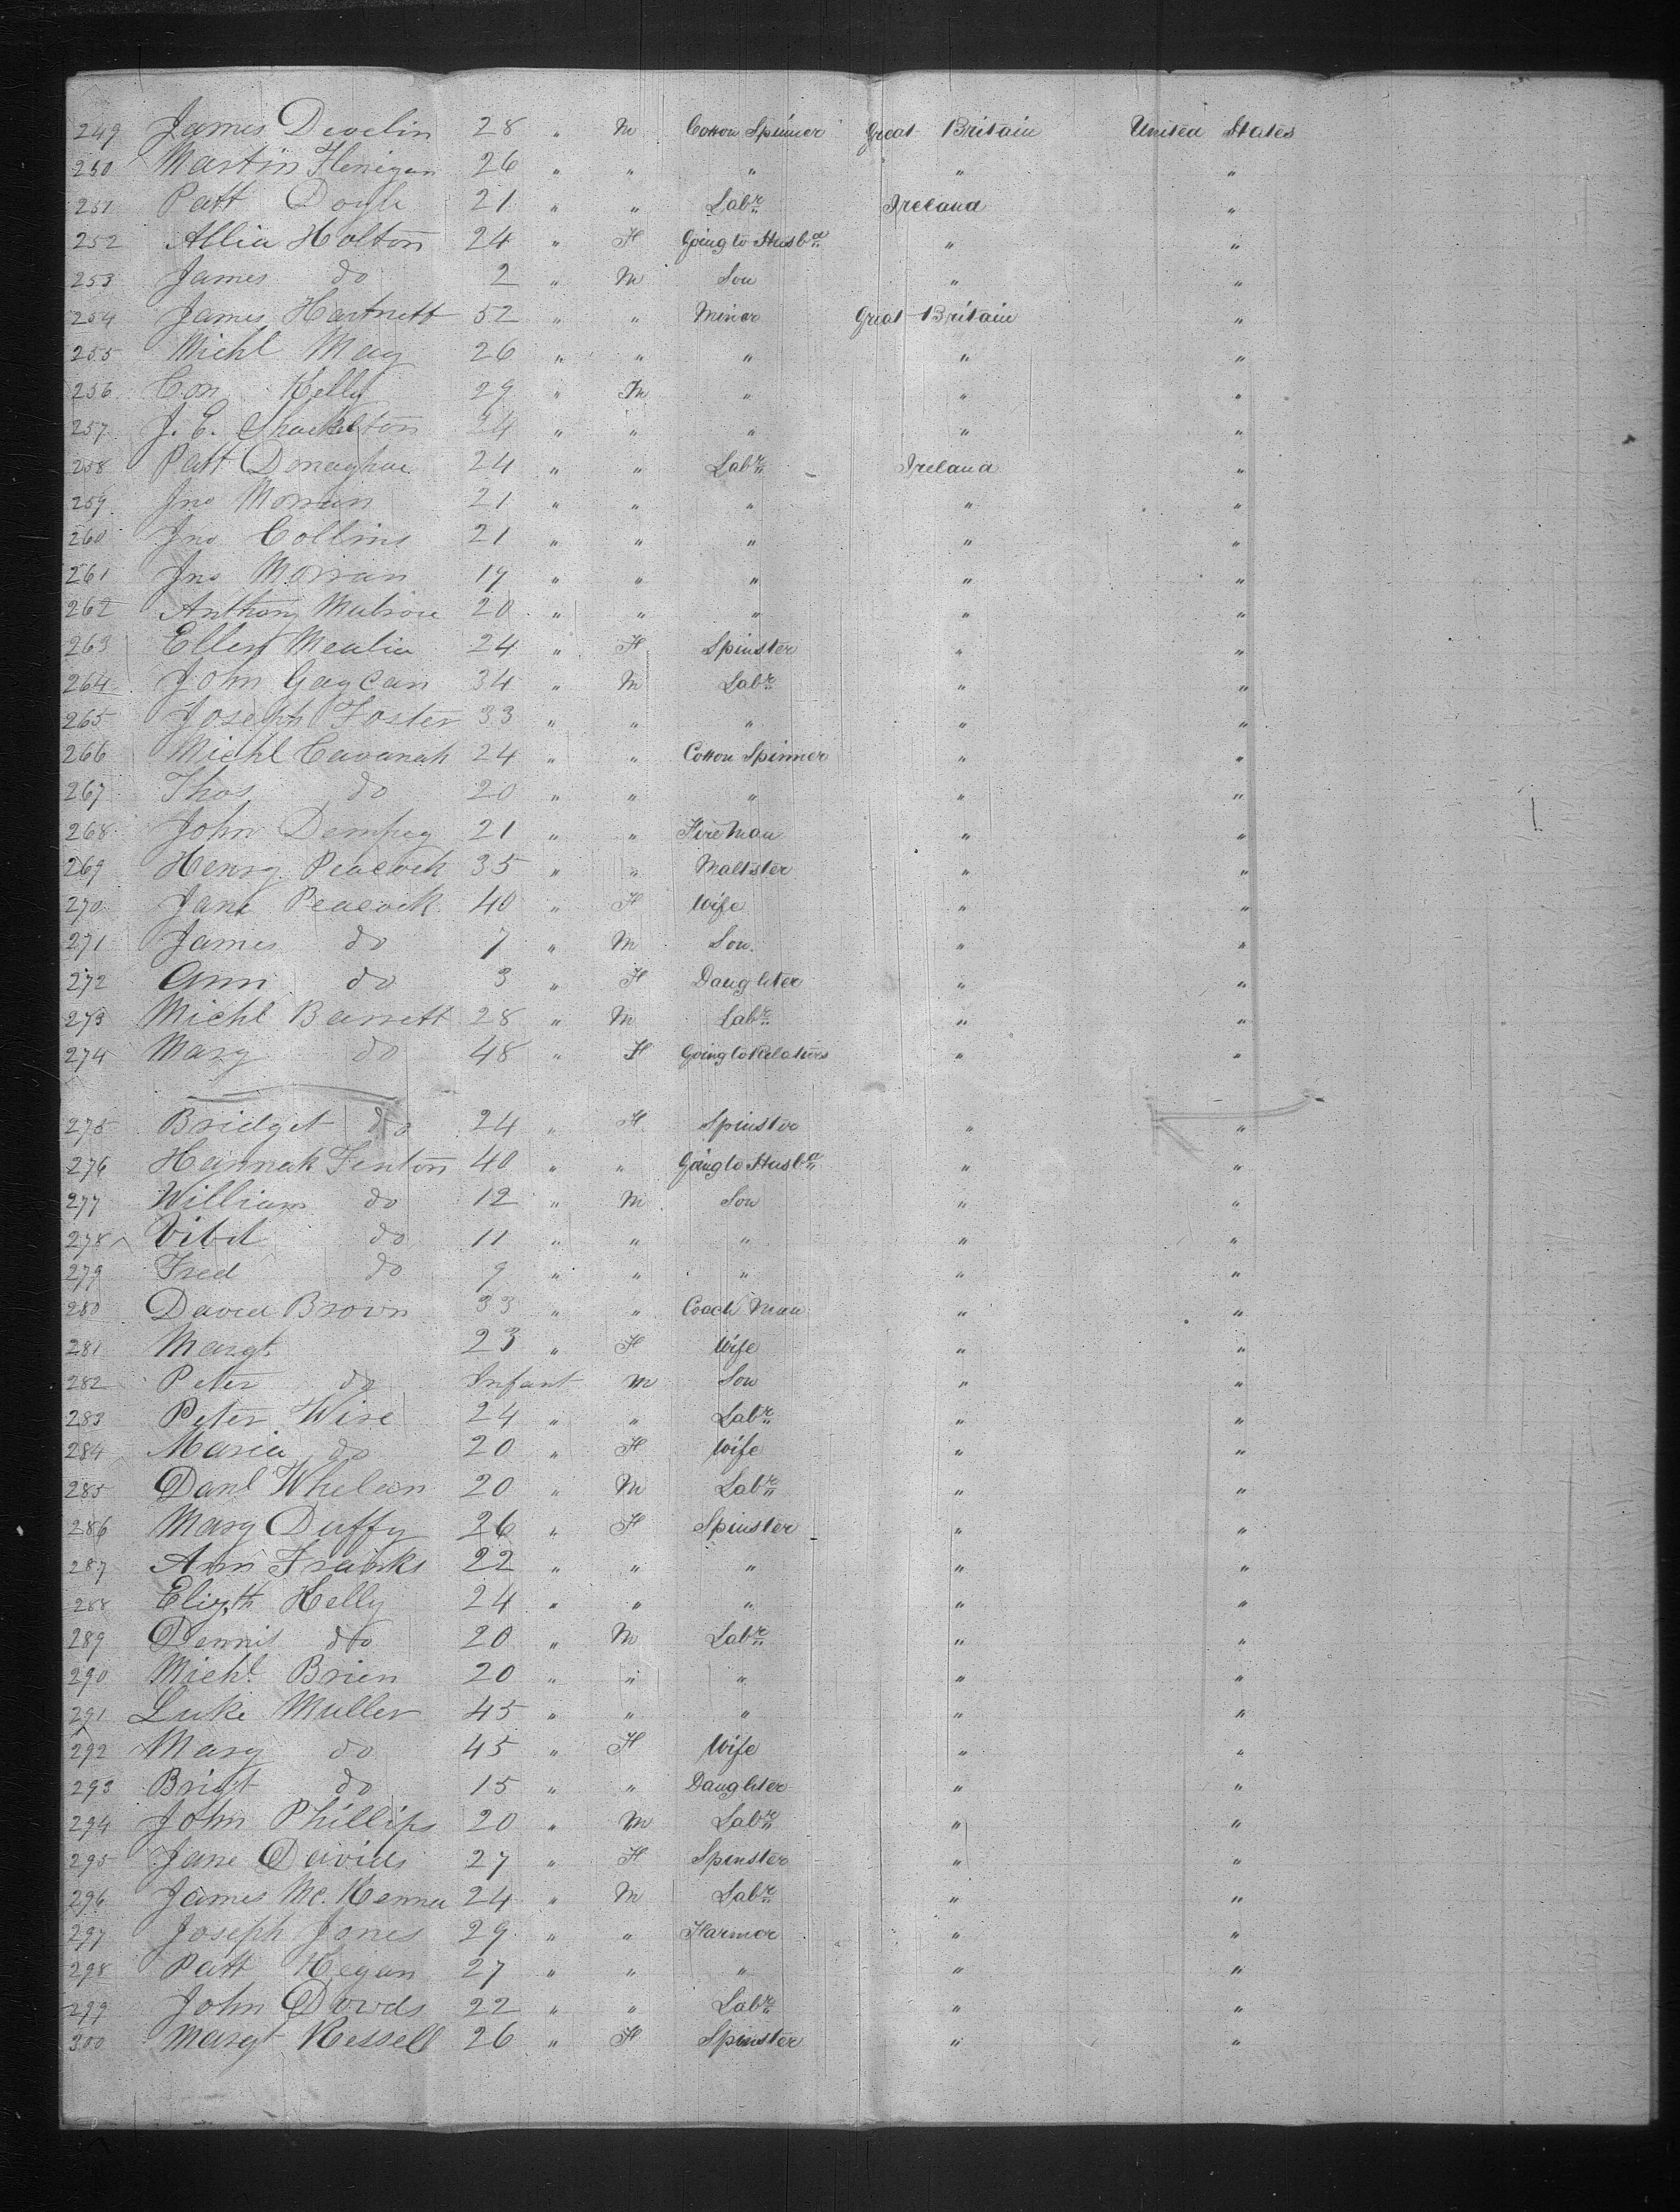 249 James Develin 28 " M Cotton Spinner Great Britain United States
250 Martin Flenigan 26 " " " " "
251 Patt Doyle 21 " " Labr Ireland "
252 Allia Holton 24 " F Going to Husbd " "
253 James do 2 " M Son " "
254 James Hartnett 52 " " Miner Great Britain "
255 Michl May 26 " " " " "
256 Con Kelly 29 " M " " "
257 J. E. Shackelton 24 " " " " "
258 Patt Donaghue 24 " " Labr Ireland "
259 Jno Morran 21 " " " " "
260 Jno Collins 21 " " " " "
261 Jno Morran 19 " " " " "
262 Anthony 20 " " " " "
263 Ellen 24 " F Spinster " "
264 John 34 " M Labr " "
265 Joseph Foster 33 " " " " "
266 Michl Cavanah 24 " " Cotton Spinner " "
267 Thos do 20 " " " " "
268 John Dempsey 21 " " Fire Man " "
269 Henry Peacock 35 " " Maltster " "
270 Jane Peacock 40 " F Wife " "
271 James do 7 " M Son " "
272 Ann do 3 " F Daughter " "
273 Michl Barrett 28 " M Labr " "
274 Mary do 48 " F Going to Relatives " "
275 Bridget do 24 " F Spinster " "
276 Hannah Fenton 40 " " Going to Husbd " "
277 William do 12 " M Son " "
278 do 11 " " " " "
279 Fred do 9 " " " " "
280 David Brown 33 " " Coach Man " "
281 Margt 23 " F Wife " "
282 Peter do Infant M Son " "
283 Peter Wise 24 " " Labr " "
284 Maria do 20 " F Wife " "
285 Danl Whelan 20 " M Labr " "
286 Mary Duffy 26 " F Spinster " "
287 Ann Franks 22 " " " " "
288 Elizth Kelly 24 " " " " "
289 Dennis do 20 " M Labr " "
290 Michl Brien 20 " " " " "
291 Luke Muller 45 " " " " "
292 Mary do 45 " F Wife " "
293 Brigt do 15 " " Daughter " "
294 John Phillips 20 " M Labr " "
295 Jane Davids 27 " F Spinster " "
296 James Mc. Kenna 24 " M Labr " "
297 Joseph Jones 29 " " Farmer " "
298 Patt Kegan 27 " " " " "
299 John Dowds 22 " " Labr " "
300 Margt Kessell 26 " F Spinster " "